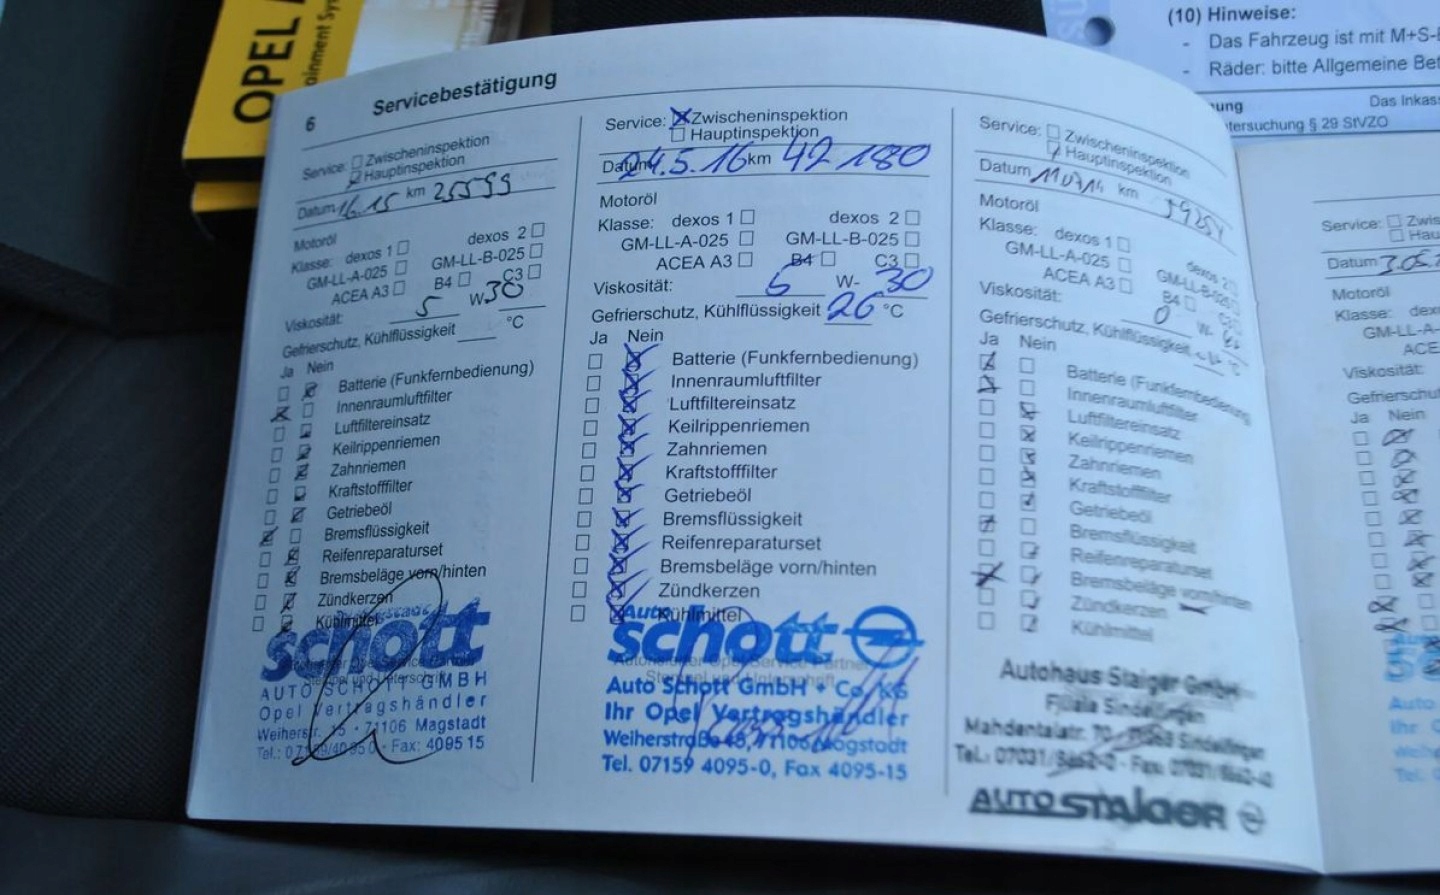 OPEL
ainment Sys
(10) Hinweise:
- Das Fahrzeug ist mit M+S-
- Räder: bitte Allgemeine Bet
ung
Das Inkass
tersuchung § 29 StVZO
6
Servicebestätigung
Service: Zwischeninspektion
Hauptinspektion
Datum km
Motoröl
Klasse: dexos 1 dexos 2
GM-LL-A-025 GM-LL-B-025
ACEA A3 B4 C3
Viskosität: 5 W 30
Gefrierschutz, Kühlflüssigkeit °C
Ja Nein
Batterie (Funkfernbedienung)
Innenraumluftfilter
Luftfiltereinsatz
Keilrippenriemen
Zahnriemen
Kraftstofffilter
Getriebeöl
Bremsflüssigkeit
Reifenreparaturset
Bremsbeläge vorn/hinten
Zündkerzen
Kühlmittel
schott
AUTO SCHOTT GMBH
Opel Vertragshändler
71106 Magstadt
Fax: 4095 15
Service: Zwischeninspektion
Hauptinspektion
Datum 24.5.16 km 42 180
Motoröl
Klasse: dexos 1 dexos 2
GM-LL-A-025 GM-LL-B-025
ACEA A3 B4 C3
Viskosität: W- 30
Gefrierschutz, Kühlflüssigkeit 26 °C
Ja Nein
Batterie (Funkfernbedienung)
Innenraumluftfilter
Luftfiltereinsatz
Keilrippenriemen
Zahnriemen
Kraftstofffilter
Getriebeöl
Bremsflüssigkeit
Reifenreparaturset
Bremsbeläge vorn/hinten
Zündkerzen
Kühlmittel
Auto
schott
Auto Schott GmbH + Co. KG
Ihr Opel Vertragshändler
Weiherstraße 71106 Magstadt
Tel. 07159 4095-0, Fax 4095-15
Service: Zwischeninspektion
Hauptinspektion
Datum km
Motoröl
Klasse: dexos 1 dexos 2
GM-LL-A-025 GM-LL-B-025
ACEA A3 B4 C3
Viskosität: 0 W-
Gefrierschutz, Kühlflüssigkeit °C
Ja Nein
Batterie (Funkfernbedienung)
Innenraumluftfilter
Luftfiltereinsatz
Keilrippenriemen
Zahnriemen
Kraftstofffilter
Getriebeöl
Bremsflüssigkeit
Reifenreparaturset
Bremsbeläge vorn/hinten
Zündkerzen
Kühlmittel
Autohaus Staiger GmbH
Filiale Sindelfingen
Mahdentalstr. 70 Sindelfingen
AUTO STAIGER
Service: Zwis
Hau
Datum
Motoröl
Klasse: dex
GM-LL-A
ACE
Viskosität:
Gefrierschu
Ja Nein
Auto
Ihr O
Weihe
Tel.